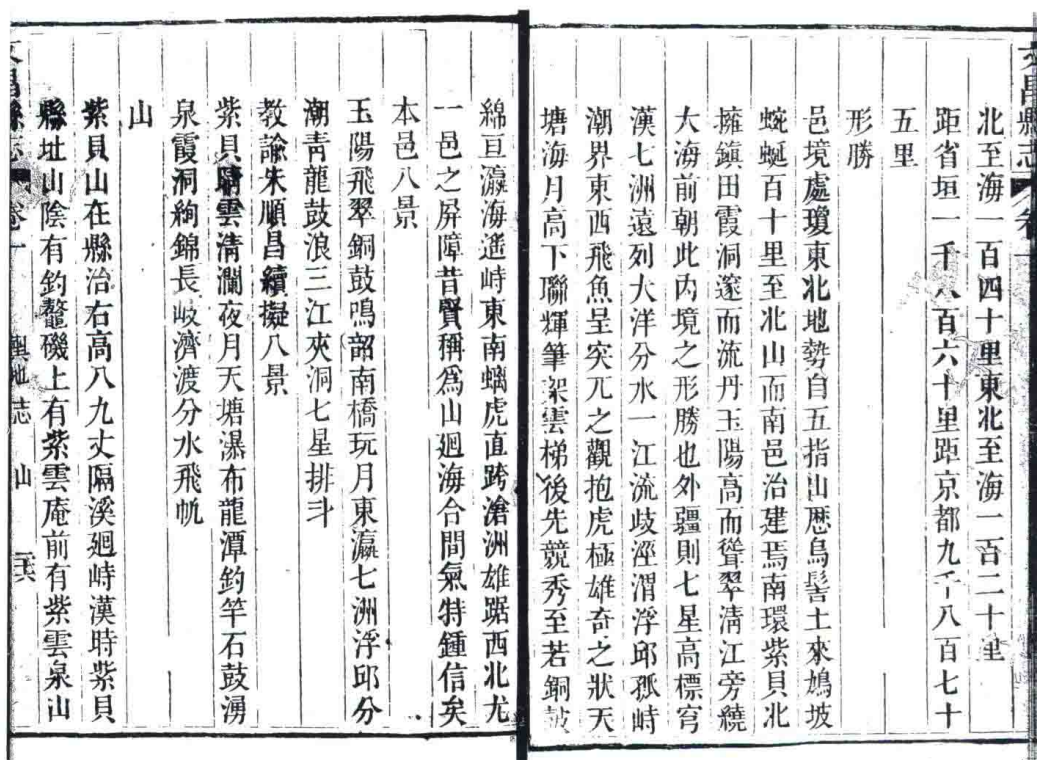 文昌縣志 卷一
北至海一百四十里東北至海一百二十里
距省垣一千八百六十里距京都九千八百七十
五里
形勝
邑境處瓊東北地勢自五指山歷烏髻土來鳩坡
蜿蜒百十里至北山而南邑治建焉南環紫貝北
擁鎮田霞洞邃而流丹玉陽高而聳翠清江旁繞
大海前朝此內境之形勝也外疆則七星高標穹
漢七洲遠列大洋分水一江流歧涇渭浮邱孤峙
潮界東西飛魚呈突兀之觀抱虎極雄奇之狀天
塘海月高下聯輝筆架雲梯後先競秀至若銅鼓
綿亘瀛海遙峙東南螭虎直跨滄洲雄踞西北尤
一邑之屏障昔賢稱為山廻海合間氣特鍾信矣
本邑八景
玉陽飛翠銅鼓鳴韶南橋玩月東瀛七洲浮邱分
潮青龍鼓浪三江夾洞七星排斗
教諭朱順昌續擬八景
紫貝晴雲清瀾夜月天塘瀑布龍潭釣竿石鼓湧
泉霞洞絢錦長岐濟渡分水飛帆
山
紫貝山在縣治右高八九丈隔溪廻峙漢時紫貝
縣址山陰有釣鼇磯上有紫雲庵前有紫雲泉山
文昌縣志 卷一 輿地志 山